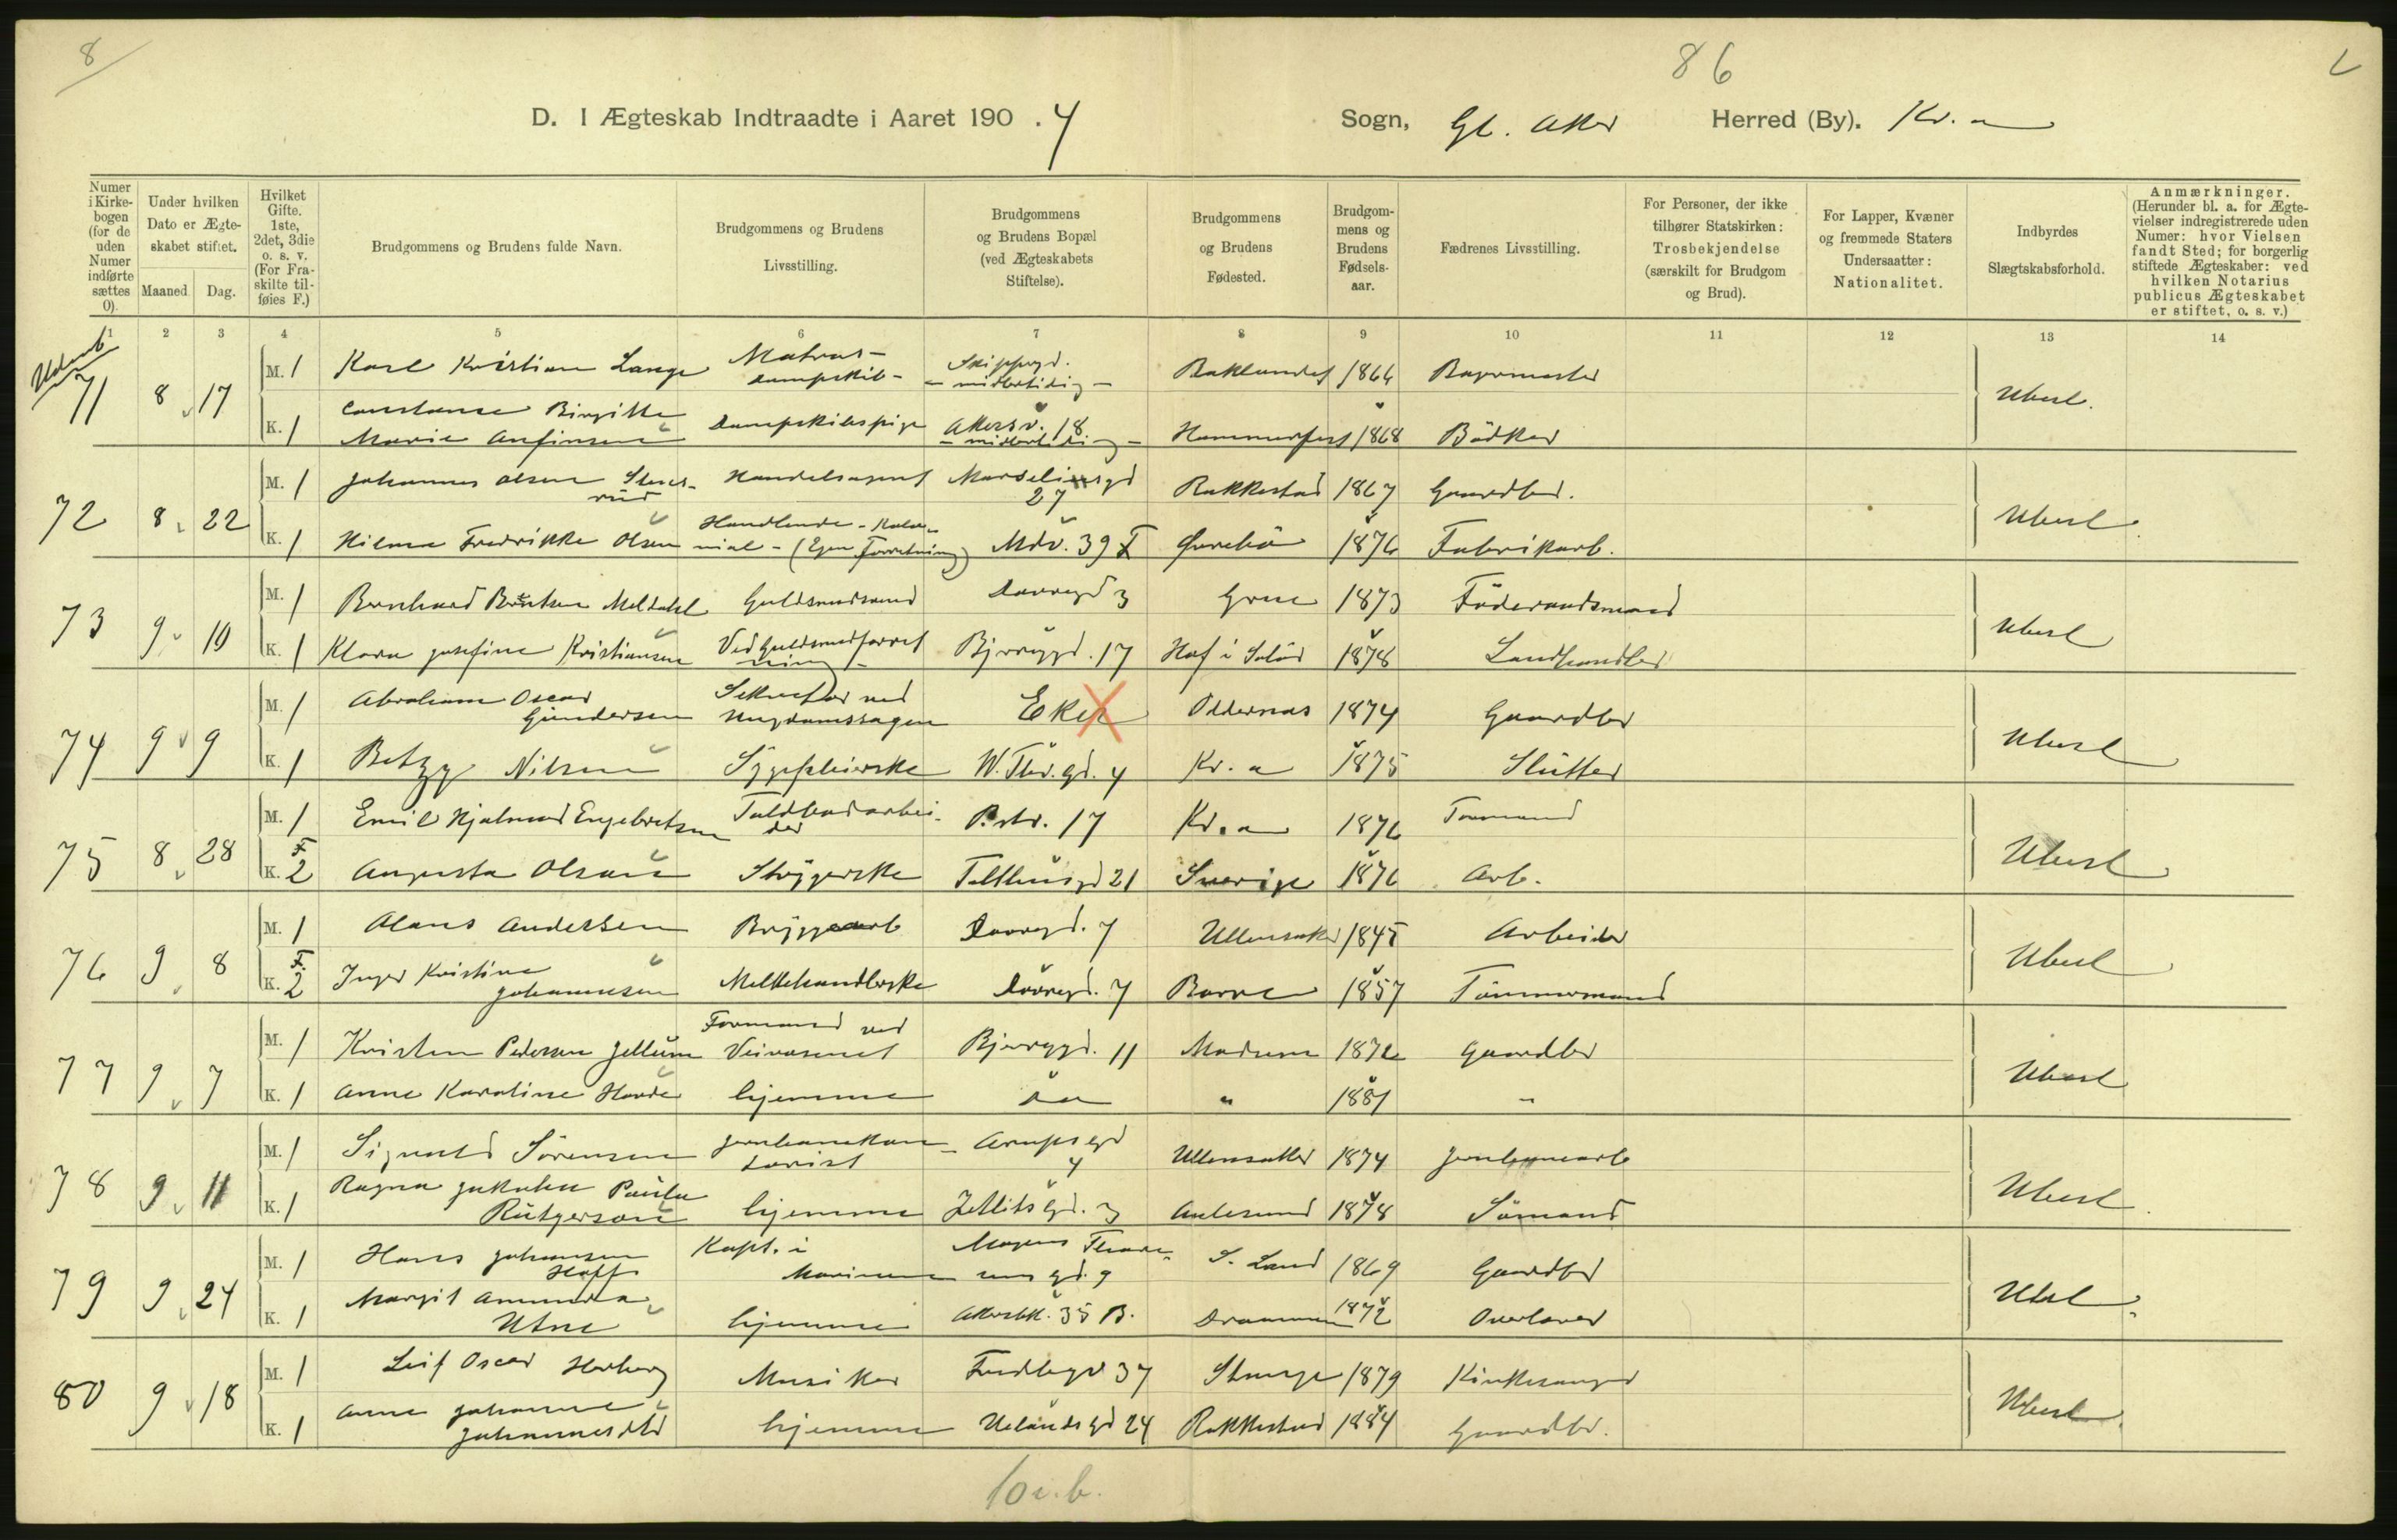 8
86
D. I Ægteskab Indtraadte i Aaret 190 . 4
Sogn, Gl. Aker Herred (By). Kr.a
Numer i Kirke-bogen (for de uden Numer indførte sættes 0).
Under hvilken Dato er Ægte-skabet stiftet.
Maaned. Dag.
Hvilket Gifte. 1ste, 2det, 3die o. s. v. (For Fra-skilte til-føies F.)
Brudgommens og Brudens fulde Navn.
Brudgommens og Brudens Livsstilling.
Brudgommens og Brudens Bopæl (ved Ægteskabets Stiftelse).
Brudgommens og Brudens Fødested.
Brudgom-mens og Brudens Fødsels-aar.
Fædrenes Livsstilling.
For Personer, der ikke tilhører Statskirken: Trosbekjendelse (særskilt for Brudgom og Brud).
For Lapper, Kvæner og fremmede Staters Undersaatter: Nationalitet.
Indbyrdes Slægtskabsforhold.
Anmærkninger. (Herunder bl. a. for Ægte-vielser indregistrerede uden Numer: hvor Vielsen fandt Sted; for borgerlig stiftede Ægteskaber: ved hvilken Notarius publicus Ægteskabet er stiftet, o. s. v.)
1 2 3 4 5 6 7 8 9 10 11 12 13 14
71 8 17 M. 1 Karl Kristian Lange Matros- dampskib- Skippergd. - midlertidig - Baklandet 1864 Bagermester Ubesl.
K. 1 Constanse Birgitte Marie Anfinsen Dampskibspige Akersv. 18 - midlertidig - Hammerfest 1868 Bödker
72 8 22 M. 1 Johannes Olsen Handelsagent 27 Rakkestad 1867 Gaardbr. Ubesl.
K. 1 Hilma Fredrikke Olsen Handlende - Kolo-nial - (Egen Forretning) Mdv. 39 1876 Fabrikarb.
73 9 10 M. 1 Bernhard Berntsen Meldahl Guldsmedsvend Dovregd 3 Grue 1873 Föderaadsmand Ubesl
K. 1 Klara Josefine Kristiansen Ved Guldsmedforret-ning - Bjerregd. 17 Hof i Solör 1878 Landhandler
74 9 9 M. 1 Abraham Oscar Gundersen Sekretær ved Ungdomssagen Eker Oddernes 1874 Gaardbr Ubesl
K. 1 Betzy Nilsen Sygepleierske W. Thr. gd. 4 Kr.a 1875 Slutter
75 8 28 M. 1 Emil Hjalmar Engebretsen Toldbodarbei-der P.str. 17 Kr.a 1876 Ubesl
K. F. 2 Augusta Olsen Strygerske Telthusgd 21 Sverige 1876 Arb.
76 9 8 M. 1 Andersen Bryggearb Dovregd. 7 Ullensaker 1845 Arbeider Ubesl
K. F. 2 Inger Kristine Johannesen Melkehandlerske Dovregd. 7 Borre 1857 Tömmermand
77 9 7 M. 1 Kristen Pedersen Jellum Formand ved Veivæsenet Bjerregd. 11 Modum 1872 Gaardbr Ubesl
K. 1 Anne Karoline Hovde hjemme do " 1881 "
78 9 11 M. 1 Sigvald Sörensen Jernbanekon-torist Arupsgd 4 Ullensaker 1874 Jernbanearb Ubesl.
K. 1 Ragna Jakobea Paula Rutgersen hjemme Jetlitsgd. 3 Aalesund 1878 Sömand
79 9 24 M. 1 Hans Johansen Hoff Kapt. i Marinen Magnus Thrane-sens gd. 9 S. Land 1869 Gaardbr Ubesl.
K. 1 Margit Ammunda Utne hjemme Akersbk. 35 B. Drammen 1872 Overlærer
80 9 18 M. 1 Leif Oscar Herberg Musiker Fredbgv 37 Stange 1879 Kirkesanger Ubesl.
K. 1 Anne Johanne Johannesdtr hjemme Uelandsgd 24 Rakkestad 1884 Gaardbr.